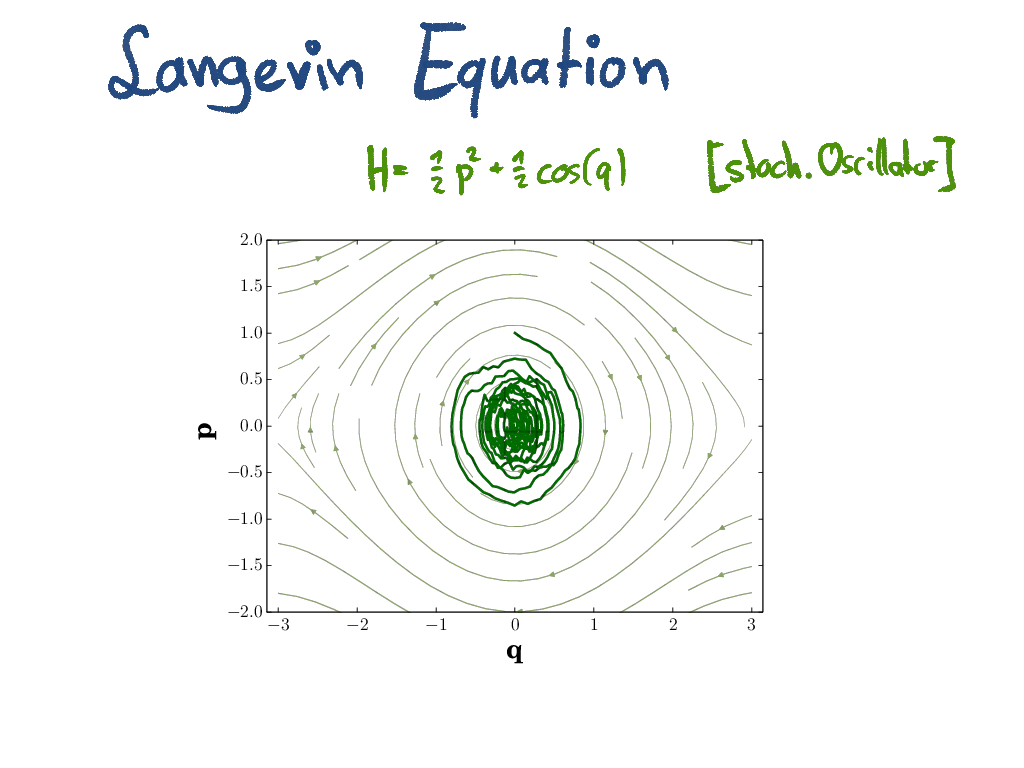 Langevin Equation
H= 1/2 p² + 1/2 cos(q) [stoch. Oscillator]
2.0
1.5
1.0
0.5
0.0
−0.5
−1.0
−1.5
−2.0
p
−3 −2 −1 0 1 2 3
q